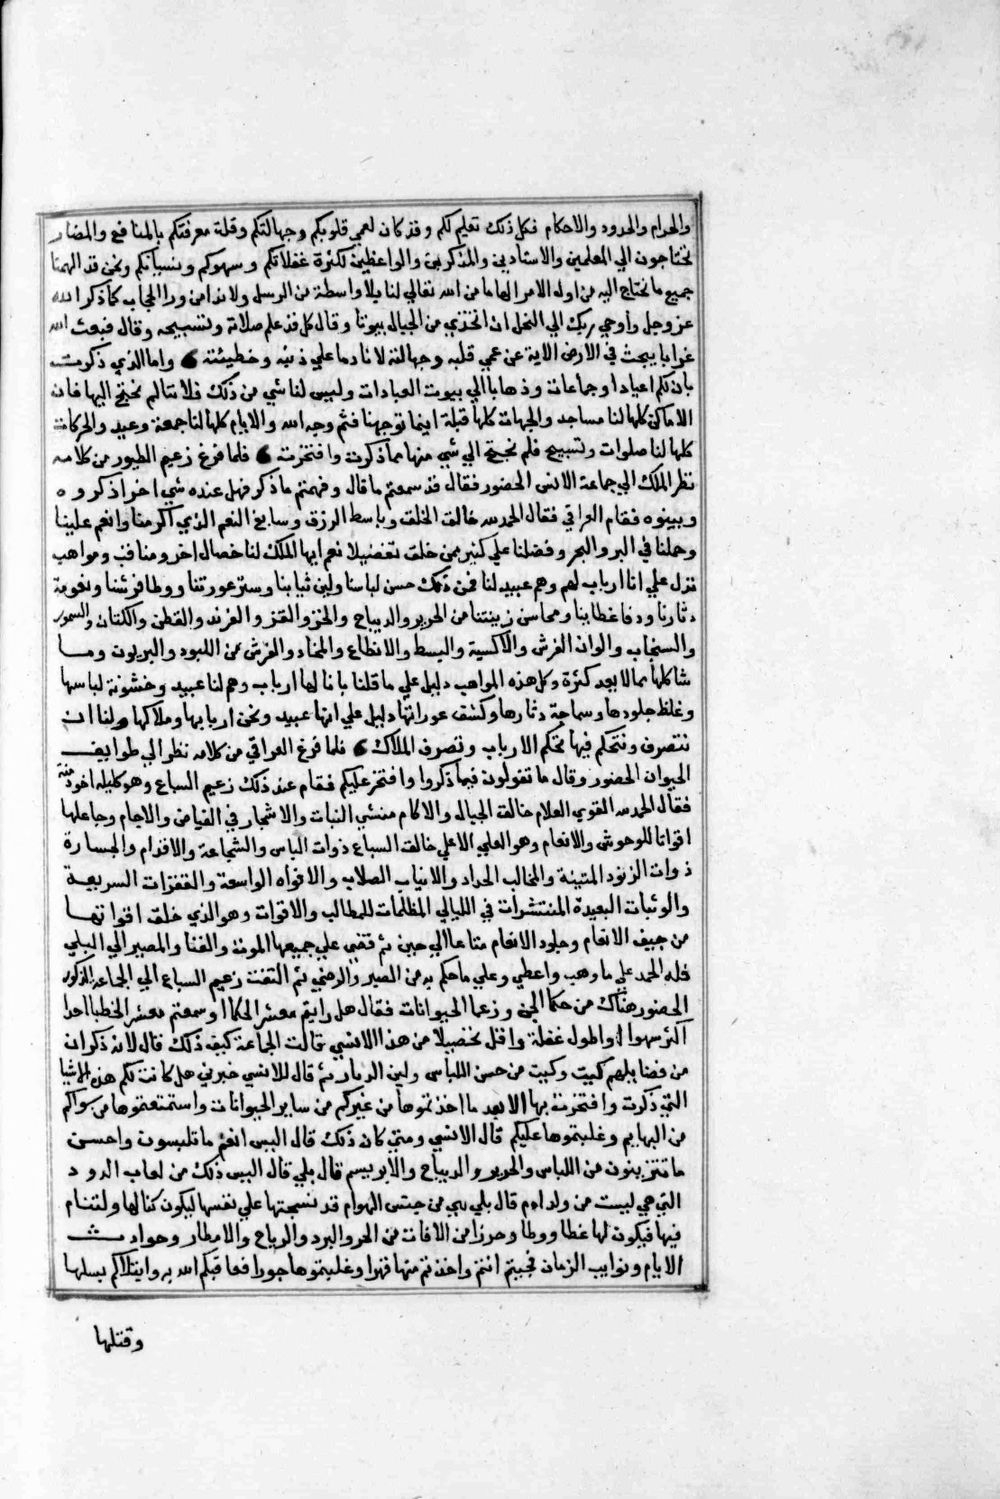 والحرام والحدود والاحكام فكل ذلك تعليم لكم وقد كان لعمي قلوبكم وجهالتكم وقلة معرفتكم بالمنافع والمضار
تحتاجون الي المعلمين والاستادين والمذكرين والواعظين لكثرة غفلاتكم وسهوكم ونسيانكم ونحن قد الهمنا
جميع ما نحتاج اليه من اول الامر الهاما من الله تعالي لنا بلا واسطة من الرسل ولا ندا من ورا الحجاب كما ذكر الله
عز وجل واوحي ربك الي النحل ان اتخذي من الجبال بيوتا وقال كل قد علم صلاته وتسبيحه وقال فبعث الله
غرابا يبحث في الارض الاية عن عمي قلبه وجهالته لا نادما علي ذنبه وخطيئته واما الذي ذكرت
بان لكم اعيادا وجماعات وذهابا الي بيوت العبادات وليس لنا شي من ذلك فلاننا لم نحتج اليها فان
الاماكن كلها لنا مساجد والجهات كلها قبلة اينما توجهنا فثم وجه الله والايام كلها لنا جمعة وعيد والحركات
كلها لنا صلوات وتسبيح فلم نحتج الي شي منها مما ذكرت وافتخرت فلما فرغ زعيم الطيور من كلامه
نظر الملك الي جماعة الانس الحضور فقال قد سمعتم ما قال وفهمتم ما ذكر فهل عنده شي اخر اذكروه
وبينوه فقام العراقي فقال الحمد لله خالق الخلق وباسط الرزق وسابغ النعم الذي اكرمنا وانعم علينا
وحملنا في البر والبحر وفضلنا علي كثير ممن خلق تفضيلا نعم ايها الملك لنا خصال اخر ومناقب ومواهب
تدل علي انا ارباب لهم وهم عبيد لنا فمن ذلك حسن لباسنا ولين ثيابنا وستر عورتنا ووطا فرشنا ونعومة
دثارنا ودفا غطاينا ومحاسن زينتنا من الحرير والديباج والخز والقز والفرند والقطن والكتان والسمور
والسنجاب والوان الفرش والاكسية والبسط والانطاع والمخاد والفرش من اللبود والبزيون وما
شاكلها مما لا يعد كثرة وكل هذه المواهب دليل علي ما قلنا بانا لها ارباب وهم لنا عبيد وخشونة لباسها
وغلظ جلودها وسماجة دثارها وكشف عوراتها دليل علي انها عبيد ونحن اربابها وملاكها ولنا ان
نتصرف ونتحكم فيها تحكم الارباب وتصرف الملاك فلما فرغ العراقي من كلامه نظر الي طوايف
الحيوان الحضور وقال ما تقولون فيما ذكروا وافتخر عليكم فقام عند ذلك زعيم السباع وهو كليله اخو دمنة
فقال الحمد لله القوي العلام خالق الجبال والاكام منشئ النبات والاشجار في الفيافي والاجام وجاعلها
اقواتا للوحوش والانعام وهو العلي الاعلي خالق السباع ذوات الباس والشجاعة والاقدام والجسارة
ذوات الزنود المتينة والمخالب الحداد والانياب الصلاب والافواه الواسعة والقفزات السريعة
والوثبات البعيدة المنتشرات في الليالي المظلمات للمطالب والاقوات وهو الذي خلق اقواتها
من جيف الانعام وجلود الانعام متاعا الي حين ثم قضي علي جميعها الموت والفنا والمصير الي البلي
فله الحمد علي ما وهب واعطي وعلي ما حكم به من الصبر والرضي ثم التفت زعيم السباع الي الجماعة المذكور
الحضور هناك من حكما الجن وزعما الحيوانات فقال هل رايتم معشر الحكما او سمعتم معشر الخطبا احدا
اكثر سهوا والطول غفلة واقل تحصيلا من هذا الانسي قالت الجماعة كيف ذلك قال لانه ذكر ان
من فضايلهم كيت وكيت من حسن اللباس ولين الدثار ثم قال للانسي خبرني هل كانت لكم هذه الاشيا
التي ذكرت وافتخرت بها الا بعد ما اخذتموها من غيركم من ساير الحيوانات واستمتعتموها من سواكم
من البهايم وغلبتموها عليكم قال الانسي ومتي كان ذلك قال اليس انعم ما تلبسون واحسن
ما تتزينون من اللباس والحرير والديباج والابريسم قال بلي قال اليس ذلك من لعاب الدود
التي هي ليست من ولد ادم قال بلي بي من جنس الهوام قد نسجتها علي نفسها ليكون كنا لها ولتنام
فيها فيكون لها غطا ووطا وحرزا من الافات من الحر والبرد والرياح والامطار وحوادث
الايام ونوايب الزمان فجيتم انتم واخذتم منها قهرا وغلبتموها جورا فعاقبكم الله به وابتلاكم بسلها
وقتلها